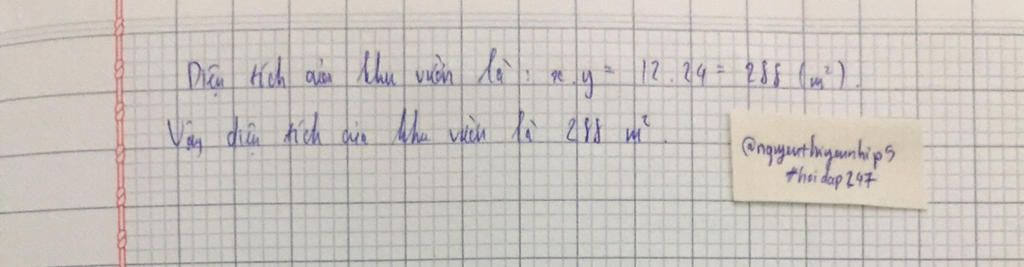 Diện tích của khu vườn là : x.y = 12.24 = 288 (m²).
Vậy diện tích của khu vườn là 288 m².
@nguyenthiyennhip5
#hoidap247